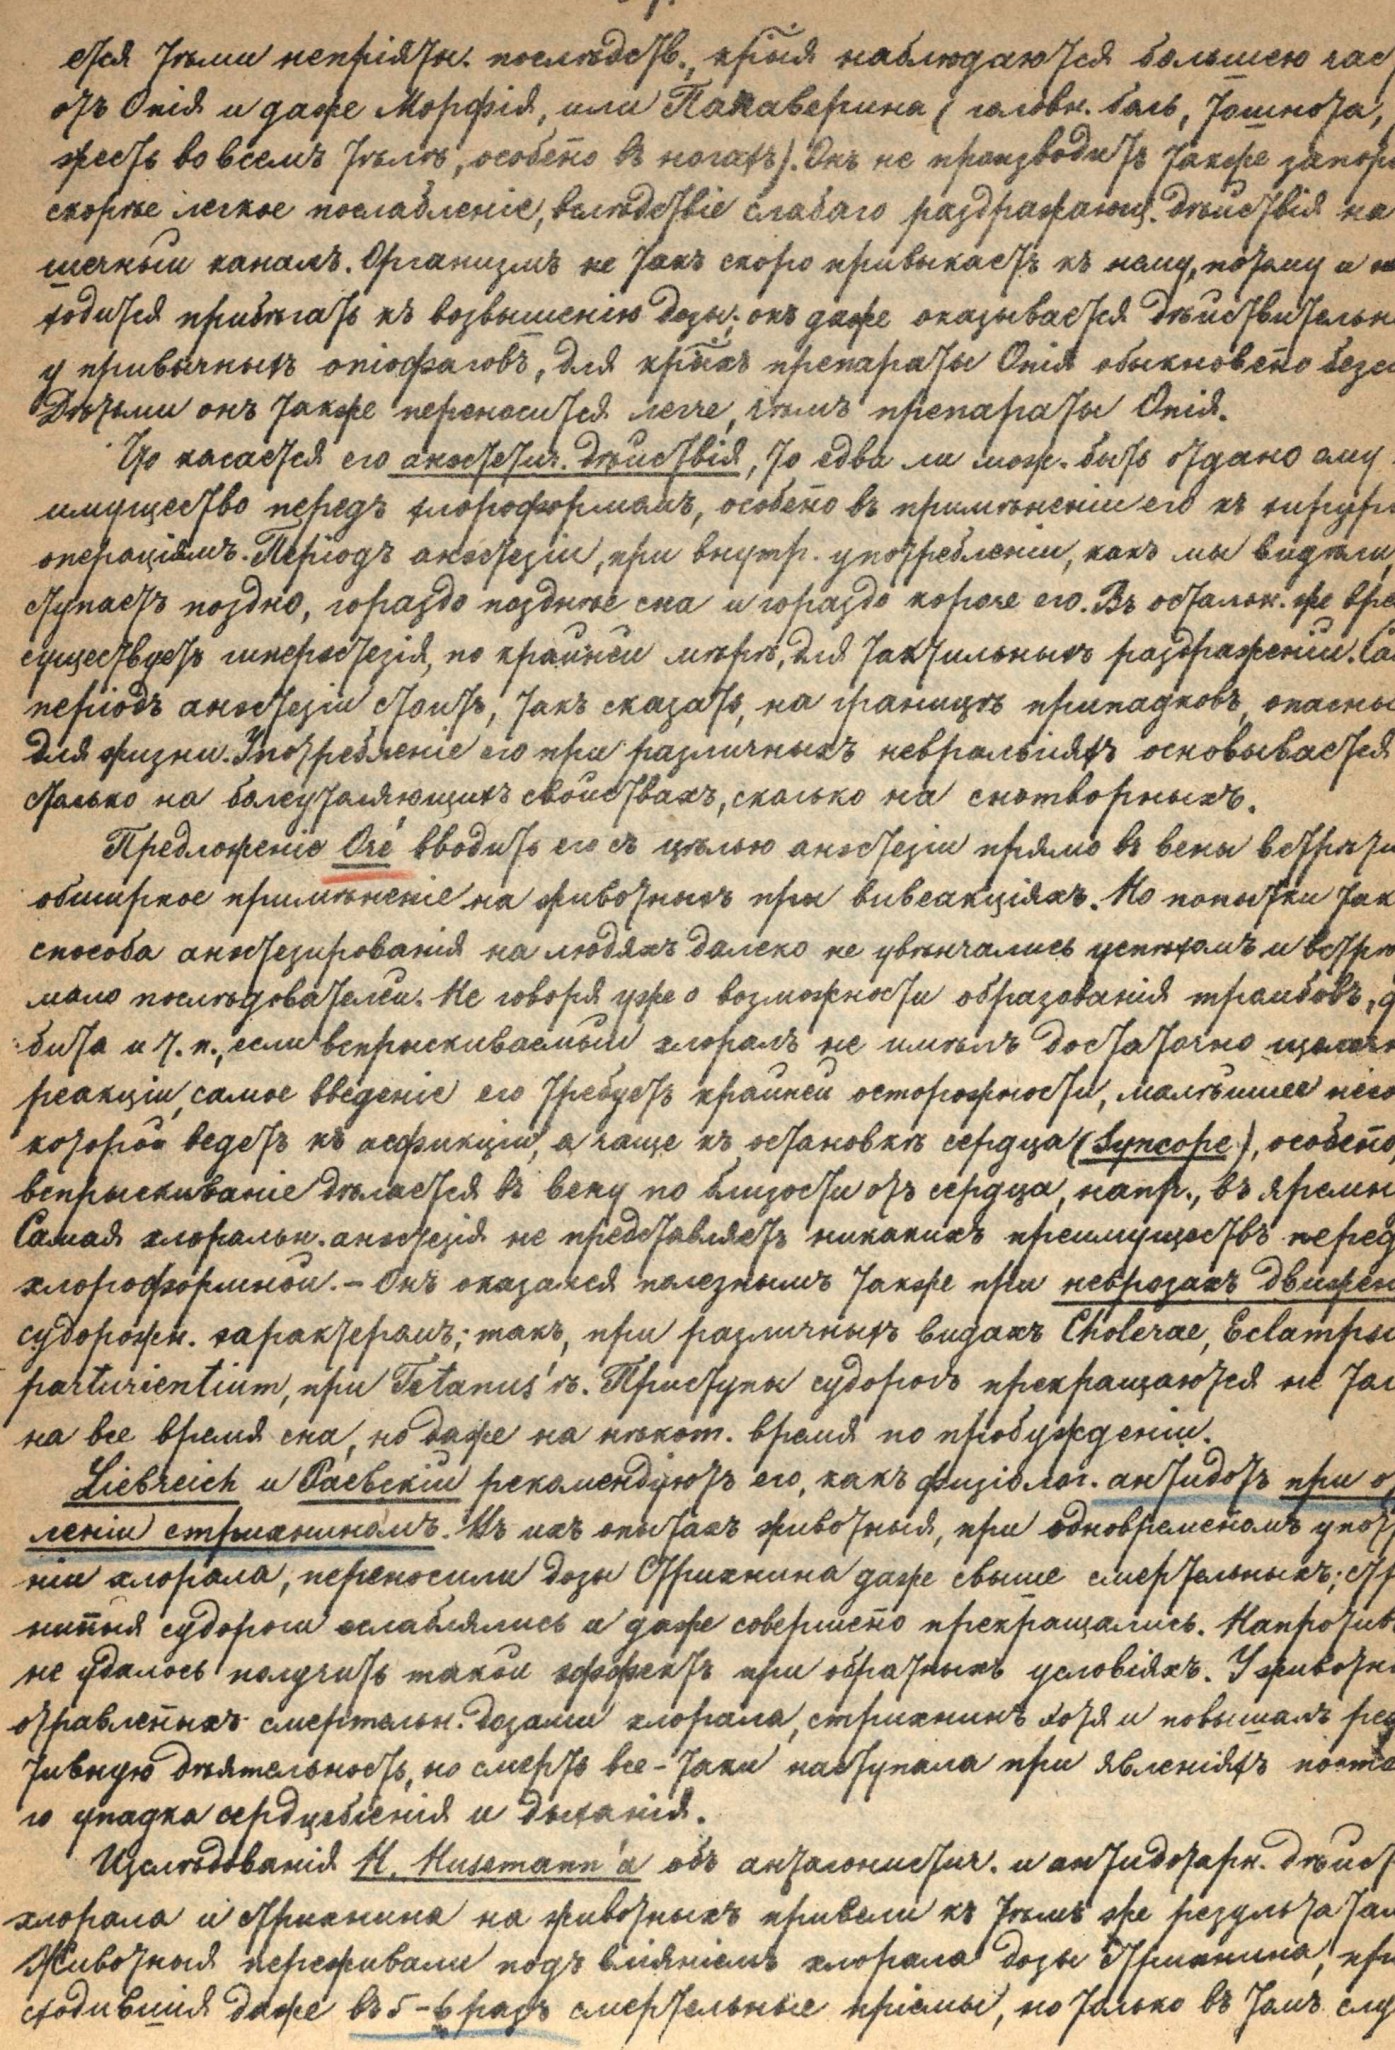 ется тѣми непріятн. послѣдств., кр̃ыя наблюдаются большею час
отъ Опія и даже Морфія, или Папаверина (головн. боль, тошнота,
жесть во всемъ тѣлѣ, особен̃о въ ногахъ). Онъ не производитъ также запоро
скорѣе легкое послабленіе, вслѣдствіе слабаго раздражающ. дѣйствія на
шечный каналъ. Организмъ не такъ скоро привыкаетъ къ нему, потому и не
ходится прибѣгать къ возвышенію дозы; онъ даже оказывается дѣйствительн
у привычныхъ опіофаговъ, для кр̃ыхъ препараты Опія обыкновен̃о безсл
Дѣтьми онъ также переносится легче, чѣмъ препараты Опія.
Что касается его анэстетич. дѣйствія, то едва ли мож. быть отдано ему
имущество передъ хлороформомъ, особен̃о въ примѣненіи его къ хирург
операціямъ. Періодъ анэстезіи, при внутр. употребленіи, какъ мы видѣли,
ступаетъ поздно, гораздо позднѣе сна и гораздо короче его. Въ остальн. же вре
существуетъ гиперэстезія, по крайней мѣрѣ, для тактильныхъ раздраженій. Са
періодъ анэстезіи стоитъ, такъ сказать, на границѣ припадковъ, опасны
для жизни. Употребленіе его при различныхъ невральгіяхъ основывается
столько на болеутоляющихъ свойствахъ, сколько на снотворныхъ.
Предложеніе Oré вводить его съ цѣлью анэстезіи прямо въ вены встрѣти
обширное примѣненіе на животныхъ при вивсекціяхъ. Но попытки так
способа анэстезированія на людяхъ далеко не увѣнчались успѣхомъ и встрѣ
мало послѣдователей. Не говоря уже о возможности образованія тромбовъ, ф
бита и т. п., если впрыскиваемый хлоралъ не имѣлъ достаточно щелочн
реакціи, самое введеніе его требуетъ крайней осторожности, малѣйшее несо
которой ведетъ къ асфикціи, а чаще къ остановкѣ сердца (Syncope), особен̃о
впрыскиваніе дѣлается въ вену по близости отъ сердца, напр., въ яремн
Самая хлоральн. анэстезія не представляетъ никакихъ преимуществъ перед
хлороформной. – Онъ оказался полезнымъ также при неврозахъ движен
судорожн. характеромъ; такъ, при различныхъ видахъ Cholerae, Eclampsi
parturientium, при Tetanus'ѣ. Приступы судорогъ прекращаются не тол
на все время сна, но даже на нѣкот. время по пробужденіи.
Liebreich и Раевскій рекомендуютъ его, какъ физіолог. антидотъ при о
леніи стрихниномъ. Въ ихъ опытахъ животныя, при одновремен̃омъ упот
ніи хлорала, переносили дозы Стрихнина даже свыше смертельныхъ; стр
нин̃ыя судороги ослаблялись и даже совершен̃о прекращались. Напротивъ
не удалось получить такой эффектъ при обратныхъ условіяхъ. У животн
отравлен̃ыхъ смертельн. дозами хлорала, стрихнинъ хотя и повышалъ реф
тивную дѣятельность, но смерть все-таки наступала при явленіяхъ посте
го упадка сердцебіенія и дыханія.
Изслѣдованія H. Husemann'а объ антагонистич. и антидотарн. дѣйст
хлорала и стрихнина на животныхъ привели къ тѣмъ же результатам
Животныя переживали подъ вліяніемъ хлорала дозы Стрихнина, пре
сходившія даже въ 5–6 разъ смертельные пріемы, но только въ томъ слу